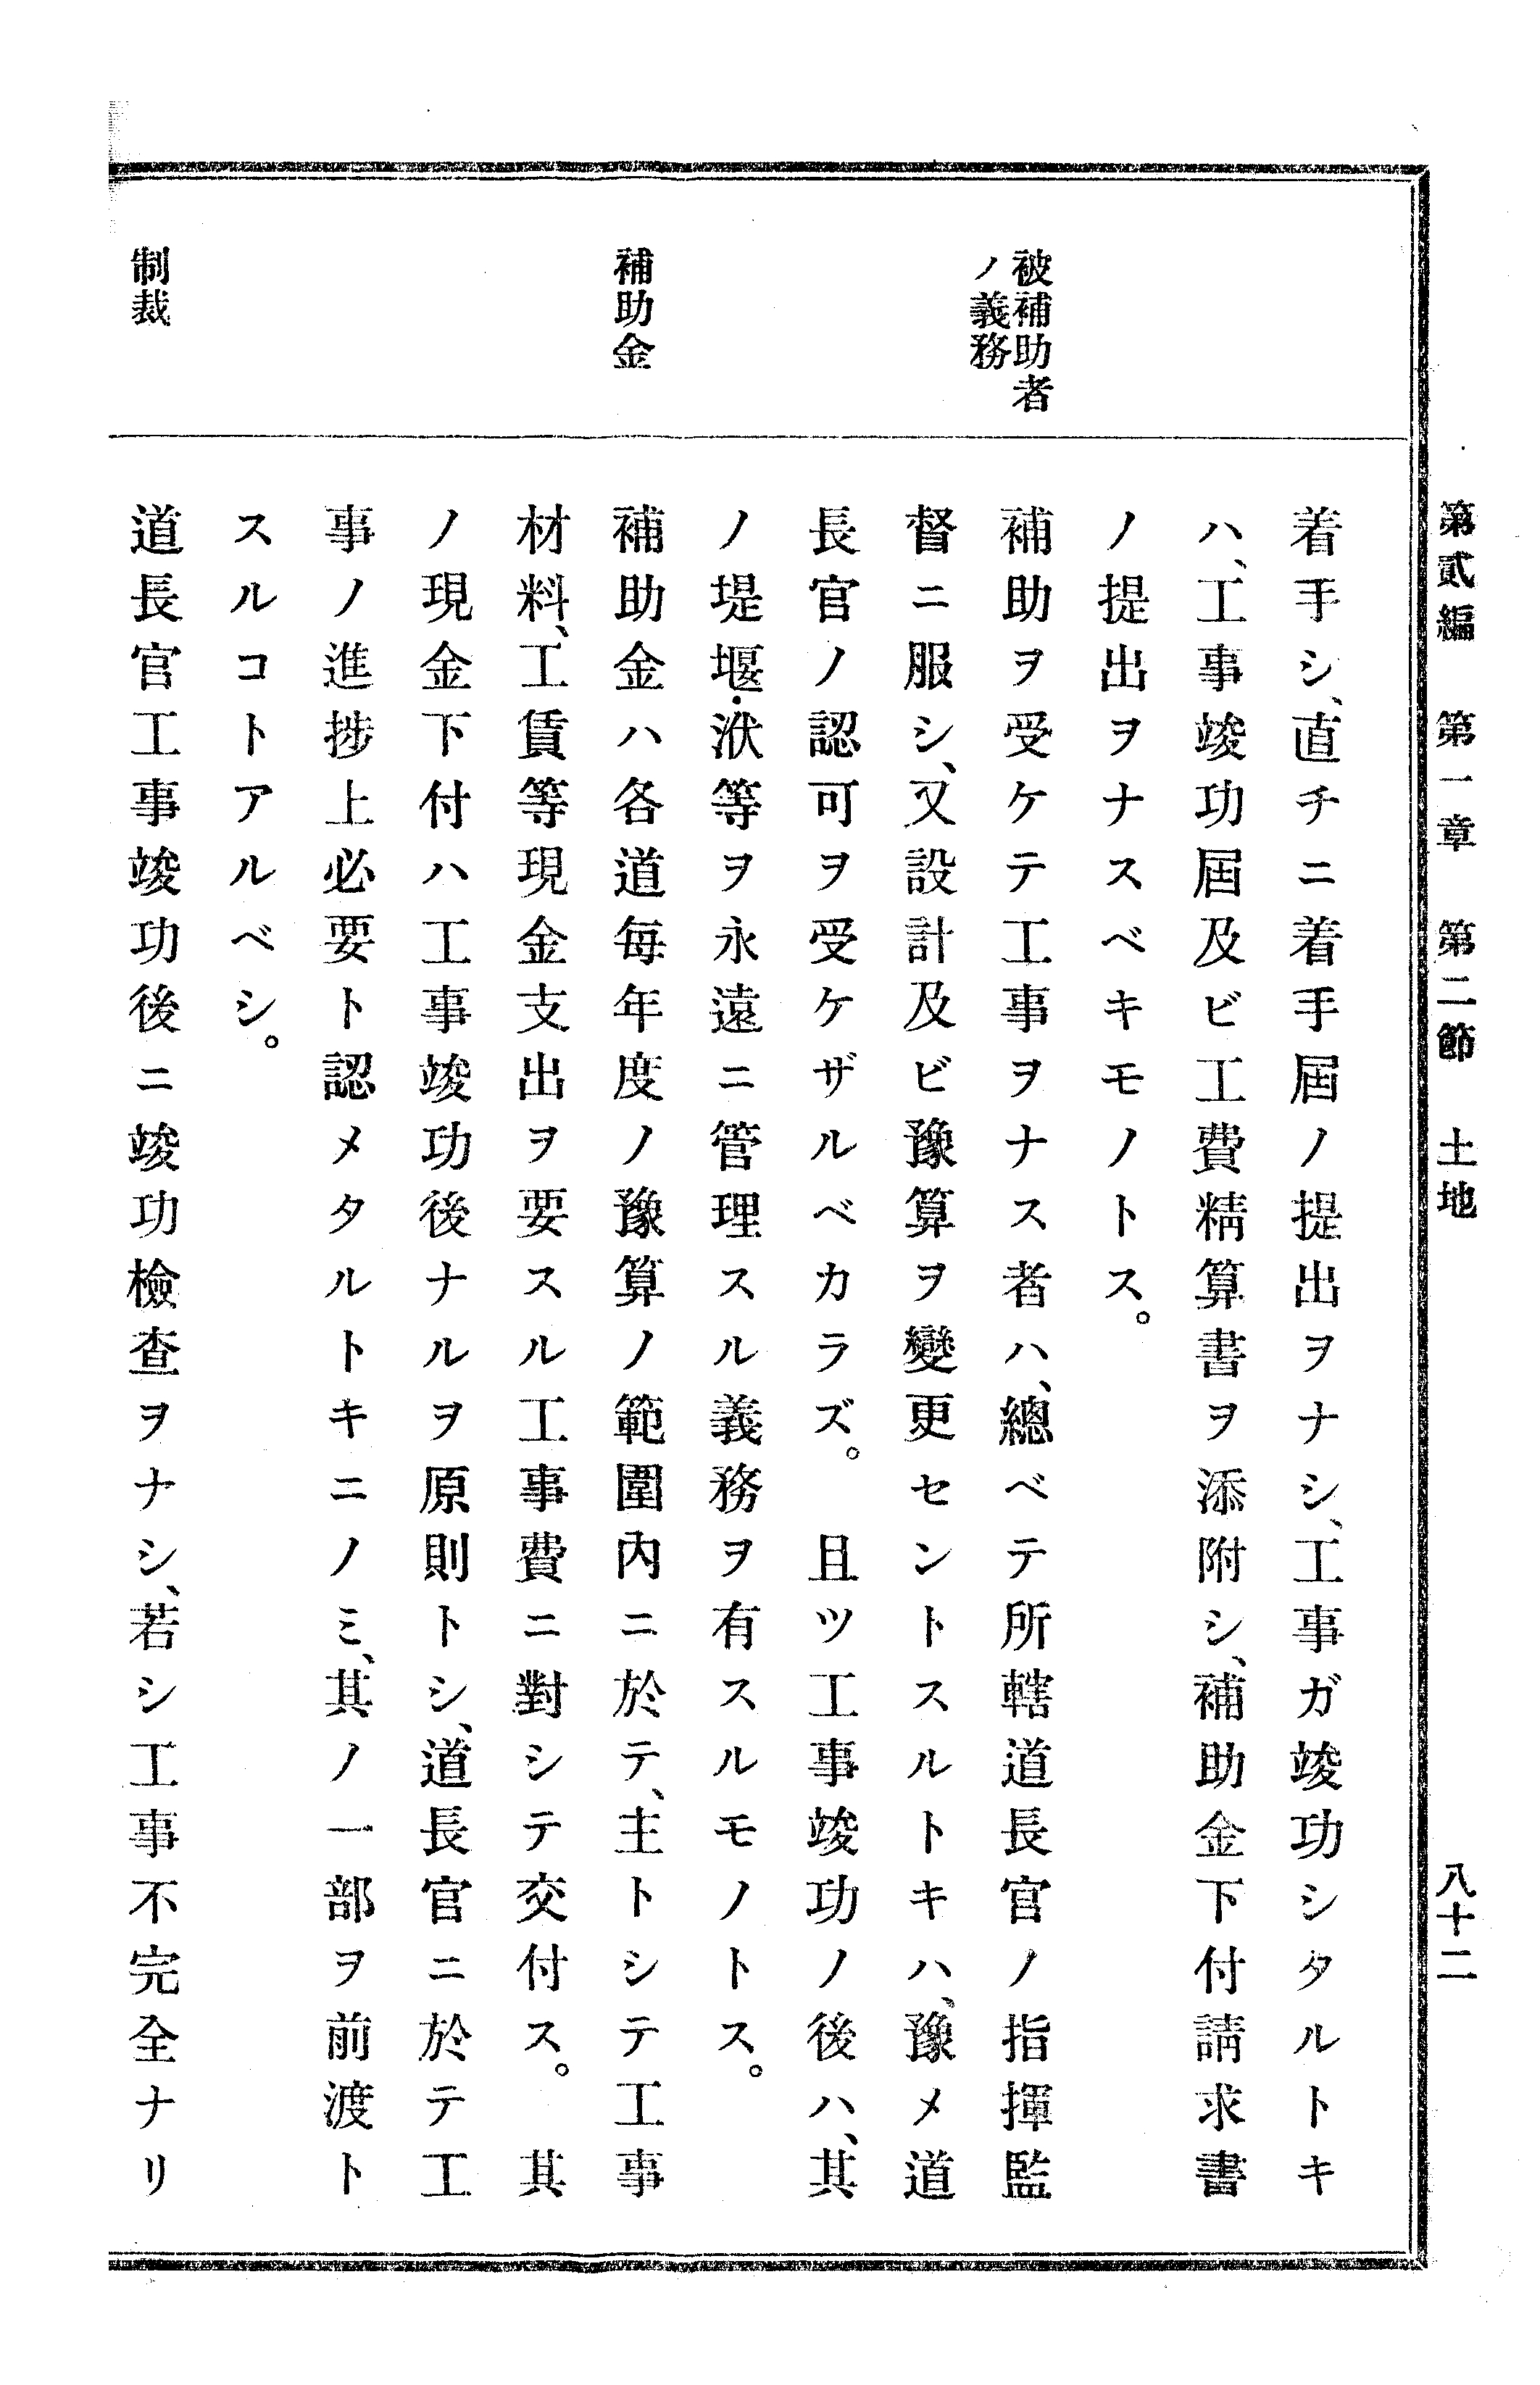 第貳編　第一章　第二節　土地　八十二
着手シ、直チニ着手屆ノ提出ヲナシ、工事ガ竣功シタルトキ
ハ、工事竣功屆及ビ工費精算書ヲ添附シ、補助金下付請求書
ノ提出ヲナスベキモノトス。
被補助者
ノ義務
補助ヲ受ケテ工事ヲナス者ハ、總ベテ所轄道長官ノ指揮監
督ニ服シ、又設計及ビ豫算ヲ變更セントスルトキハ、豫メ道
長官ノ認可ヲ受ケザルベカラズ。　且ツ工事竣功ノ後ハ、其
ノ堤堰・洑等ヲ永遠ニ管理スル義務ヲ有スルモノトス。
補助金
補助金ハ各道每年度ノ豫算ノ範圍內ニ於テ、主トシテ工事
材料、工賃等現金支出ヲ要スル工事費ニ對シテ交付ス。　其
ノ現金下付ハ工事竣功後ナルヲ原則トシ、道長官ニ於テ工
事ノ進捗上必要ト認メタルトキニノミ、其ノ一部ヲ前渡ト
スルコトアルベシ。
制裁
道長官工事竣功後ニ竣功檢査ヲナシ、若シ工事不完全ナリ